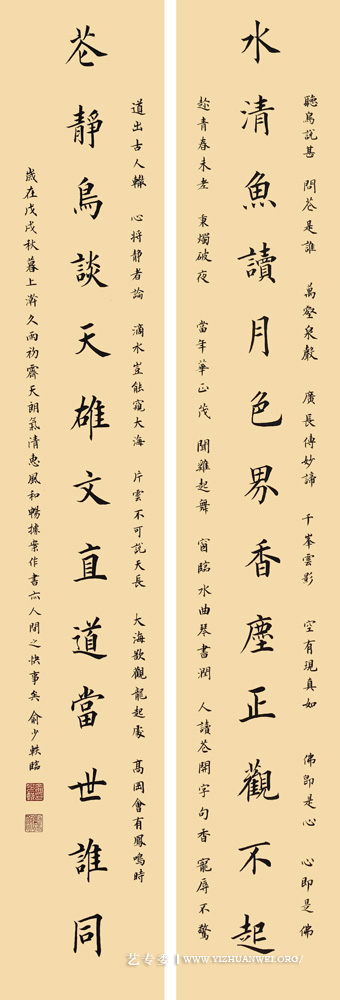 聽鳥說甚 問花是誰 萬壑泉聲 廣長傳妙諦 千峯雲影 空有現真如 佛即是心 心即是佛
水清魚讀月色界香塵正觀不起
趁青春未老 秉燭破夜 當年華正茂 聞雞起舞 窗臨水曲琴書潤 人讀花開字句香 寵辱不驚
道出古人轍 心將靜者論 滴水豈能窺大海 片雲不可說天長 大海歡觀龍起處 高岡會有鳳鳴時
花靜鳥談天雄文直道當世誰同
歲在戊戌秋暮上澣久雨初霽天朗氣清惠風和暢據案作書亦人間之快事矣 俞少軼臨
艺专委 | WWW.YIZHUANWEI.ORG/